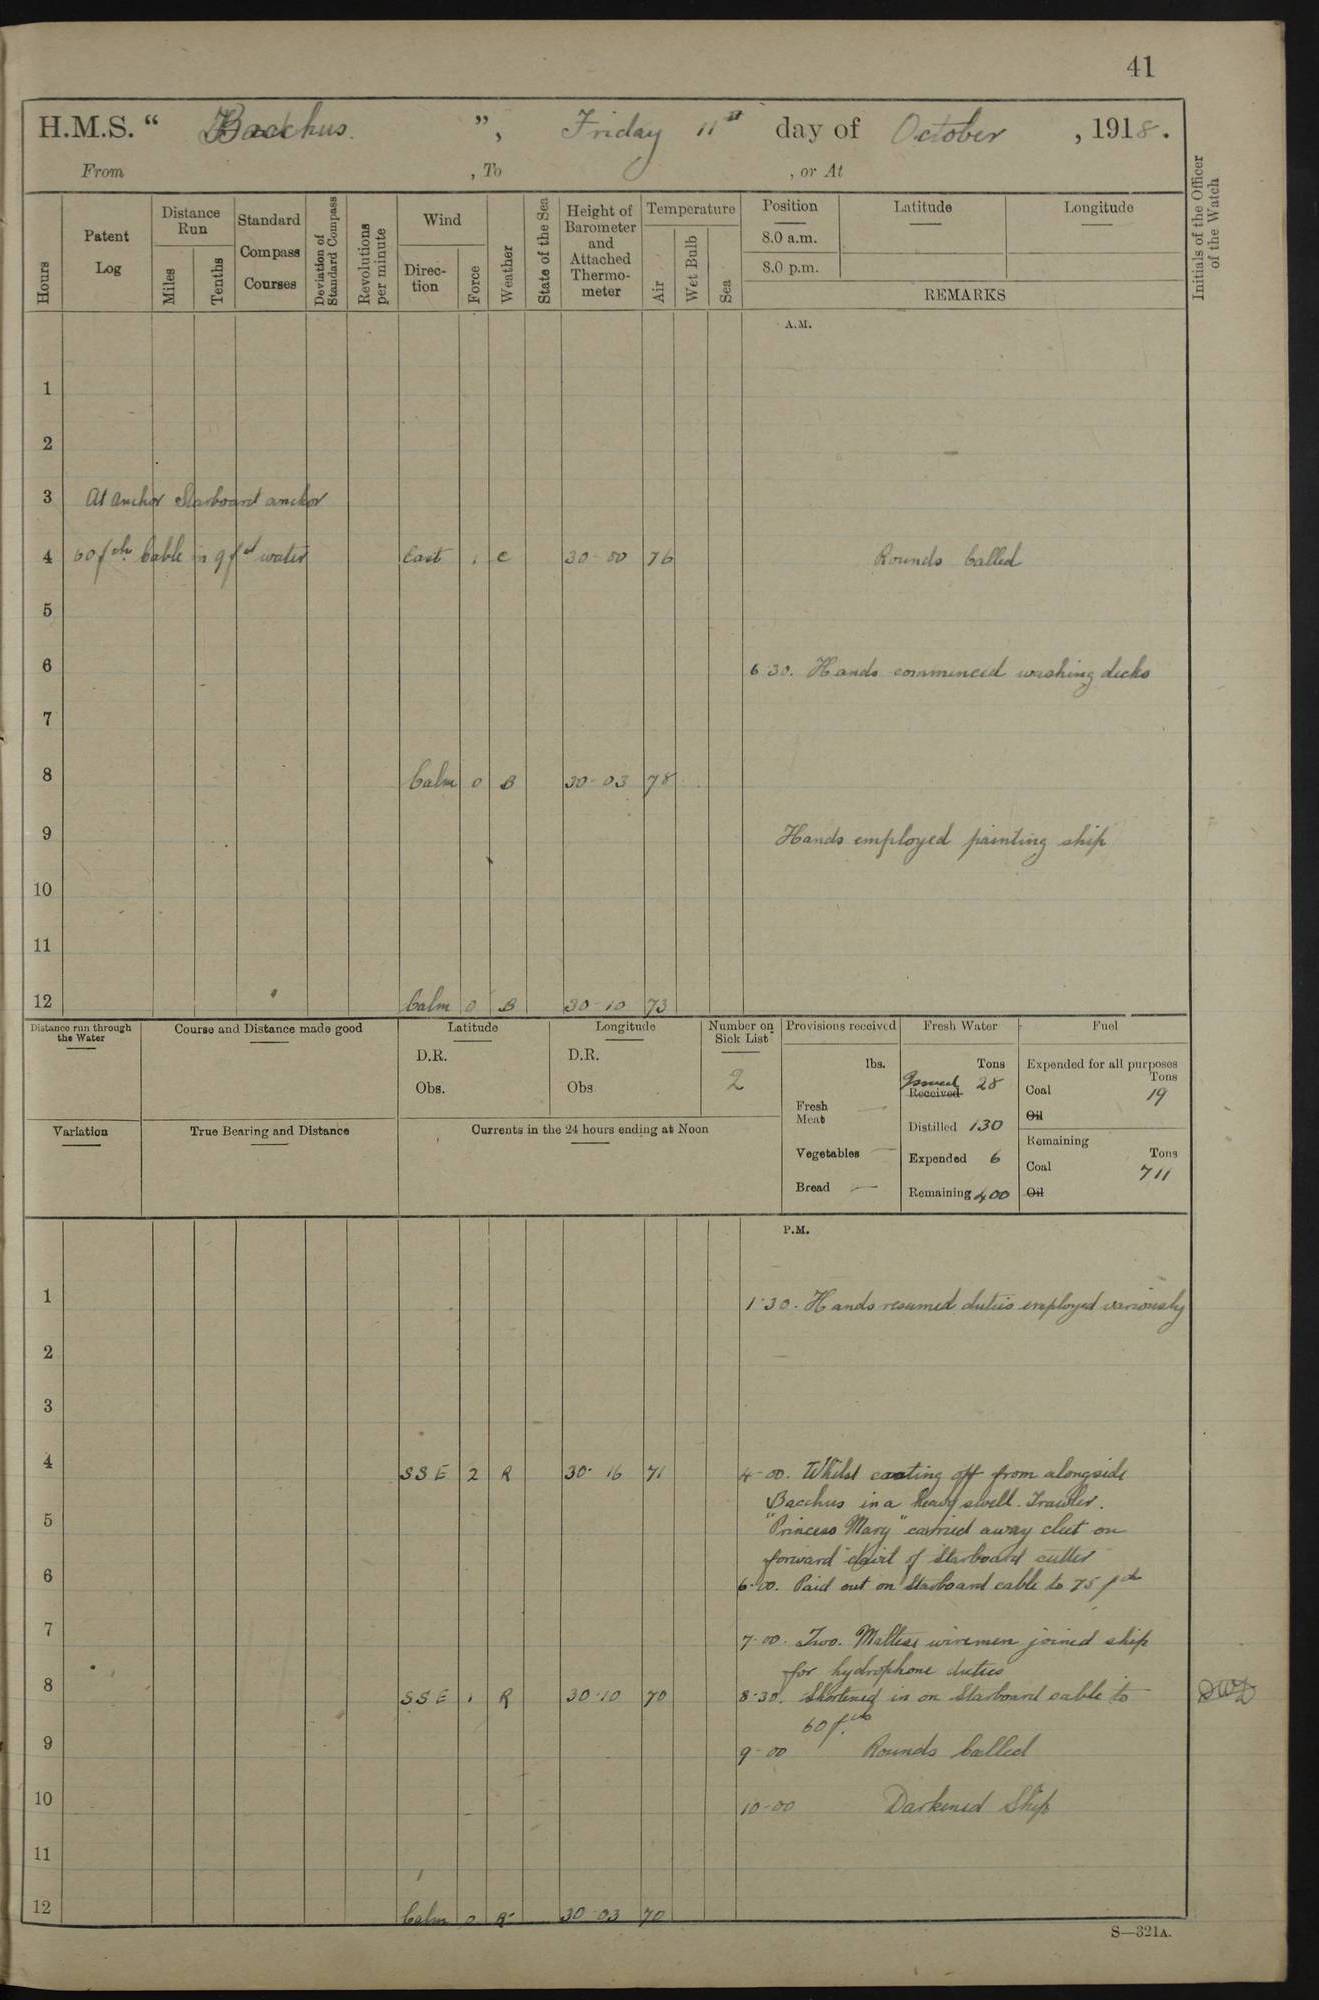 41
H.M.S. “ Bacchus. ”, Friday 11st day of October , 1918.
From , To , or At
Hours
Patent Log
Distance Run
Miles
Tenths
Standard Compass Courses
Deviation of Standard Compass
Revolutions per minute
Wind
Direction
Force
Weather
State of the Sea
Height of Barometer and Attached Thermometer
Temperature
Air
Wet Bulb
Sea
Position
8.0 a.m.
8.0 p.m.
Latitude
Longitude
REMARKS
Initials of the Officer of the Watch
A.M.
1
2
3 At anchor Starboard anchor
4 60 fths Cable in 9 fth water East 1 C 30-00 76 Rounds Called
5
6 6.30. Hands commenced washing decks
7
8 Calm 0 B 30-03 78
9 Hands employed painting ship
10
11
12 Calm 0 B 30-10 73
Distance run through the Water
Course and Distance made good
Latitude
D.R.
Obs.
Longitude
D.R.
Obs
Number on Sick List
2
Provisions received
lbs.
Fresh Meat —
Vegetables —
Bread —
Fresh Water
Tons
Issued 28
Received
Distilled 130
Expended 6
Remaining 400
Fuel
Expended for all purposes
Tons
Coal 19
Oil
Remaining
Tons
Coal 711
Oil
Variation
True Bearing and Distance
Currents in the 24 hours ending at Noon
P.M.
1 1.30. Hands resumed duties employed variously
2
3
4 SSE 2 R 30-16 71 4-00. Whilst casting off from alongside
Bacchus in a heavy swell. Trawler.
5 "Princess Mary" carried away cleet on
forward davit of Starboard cutter
6 6.00. Paid out on Starboard cable to 75 fth
7 7-00. Two. Maltese wiremen joined ship
for hydrophone duties
8 SSE 1 R 30-10 70 8.30. Shortened in on Starboard cable to
60 fths
9 9-00 Rounds Called
10 10-00 Darkened Ship
11
12 Calm 0 R 30 03 70
S—321A.